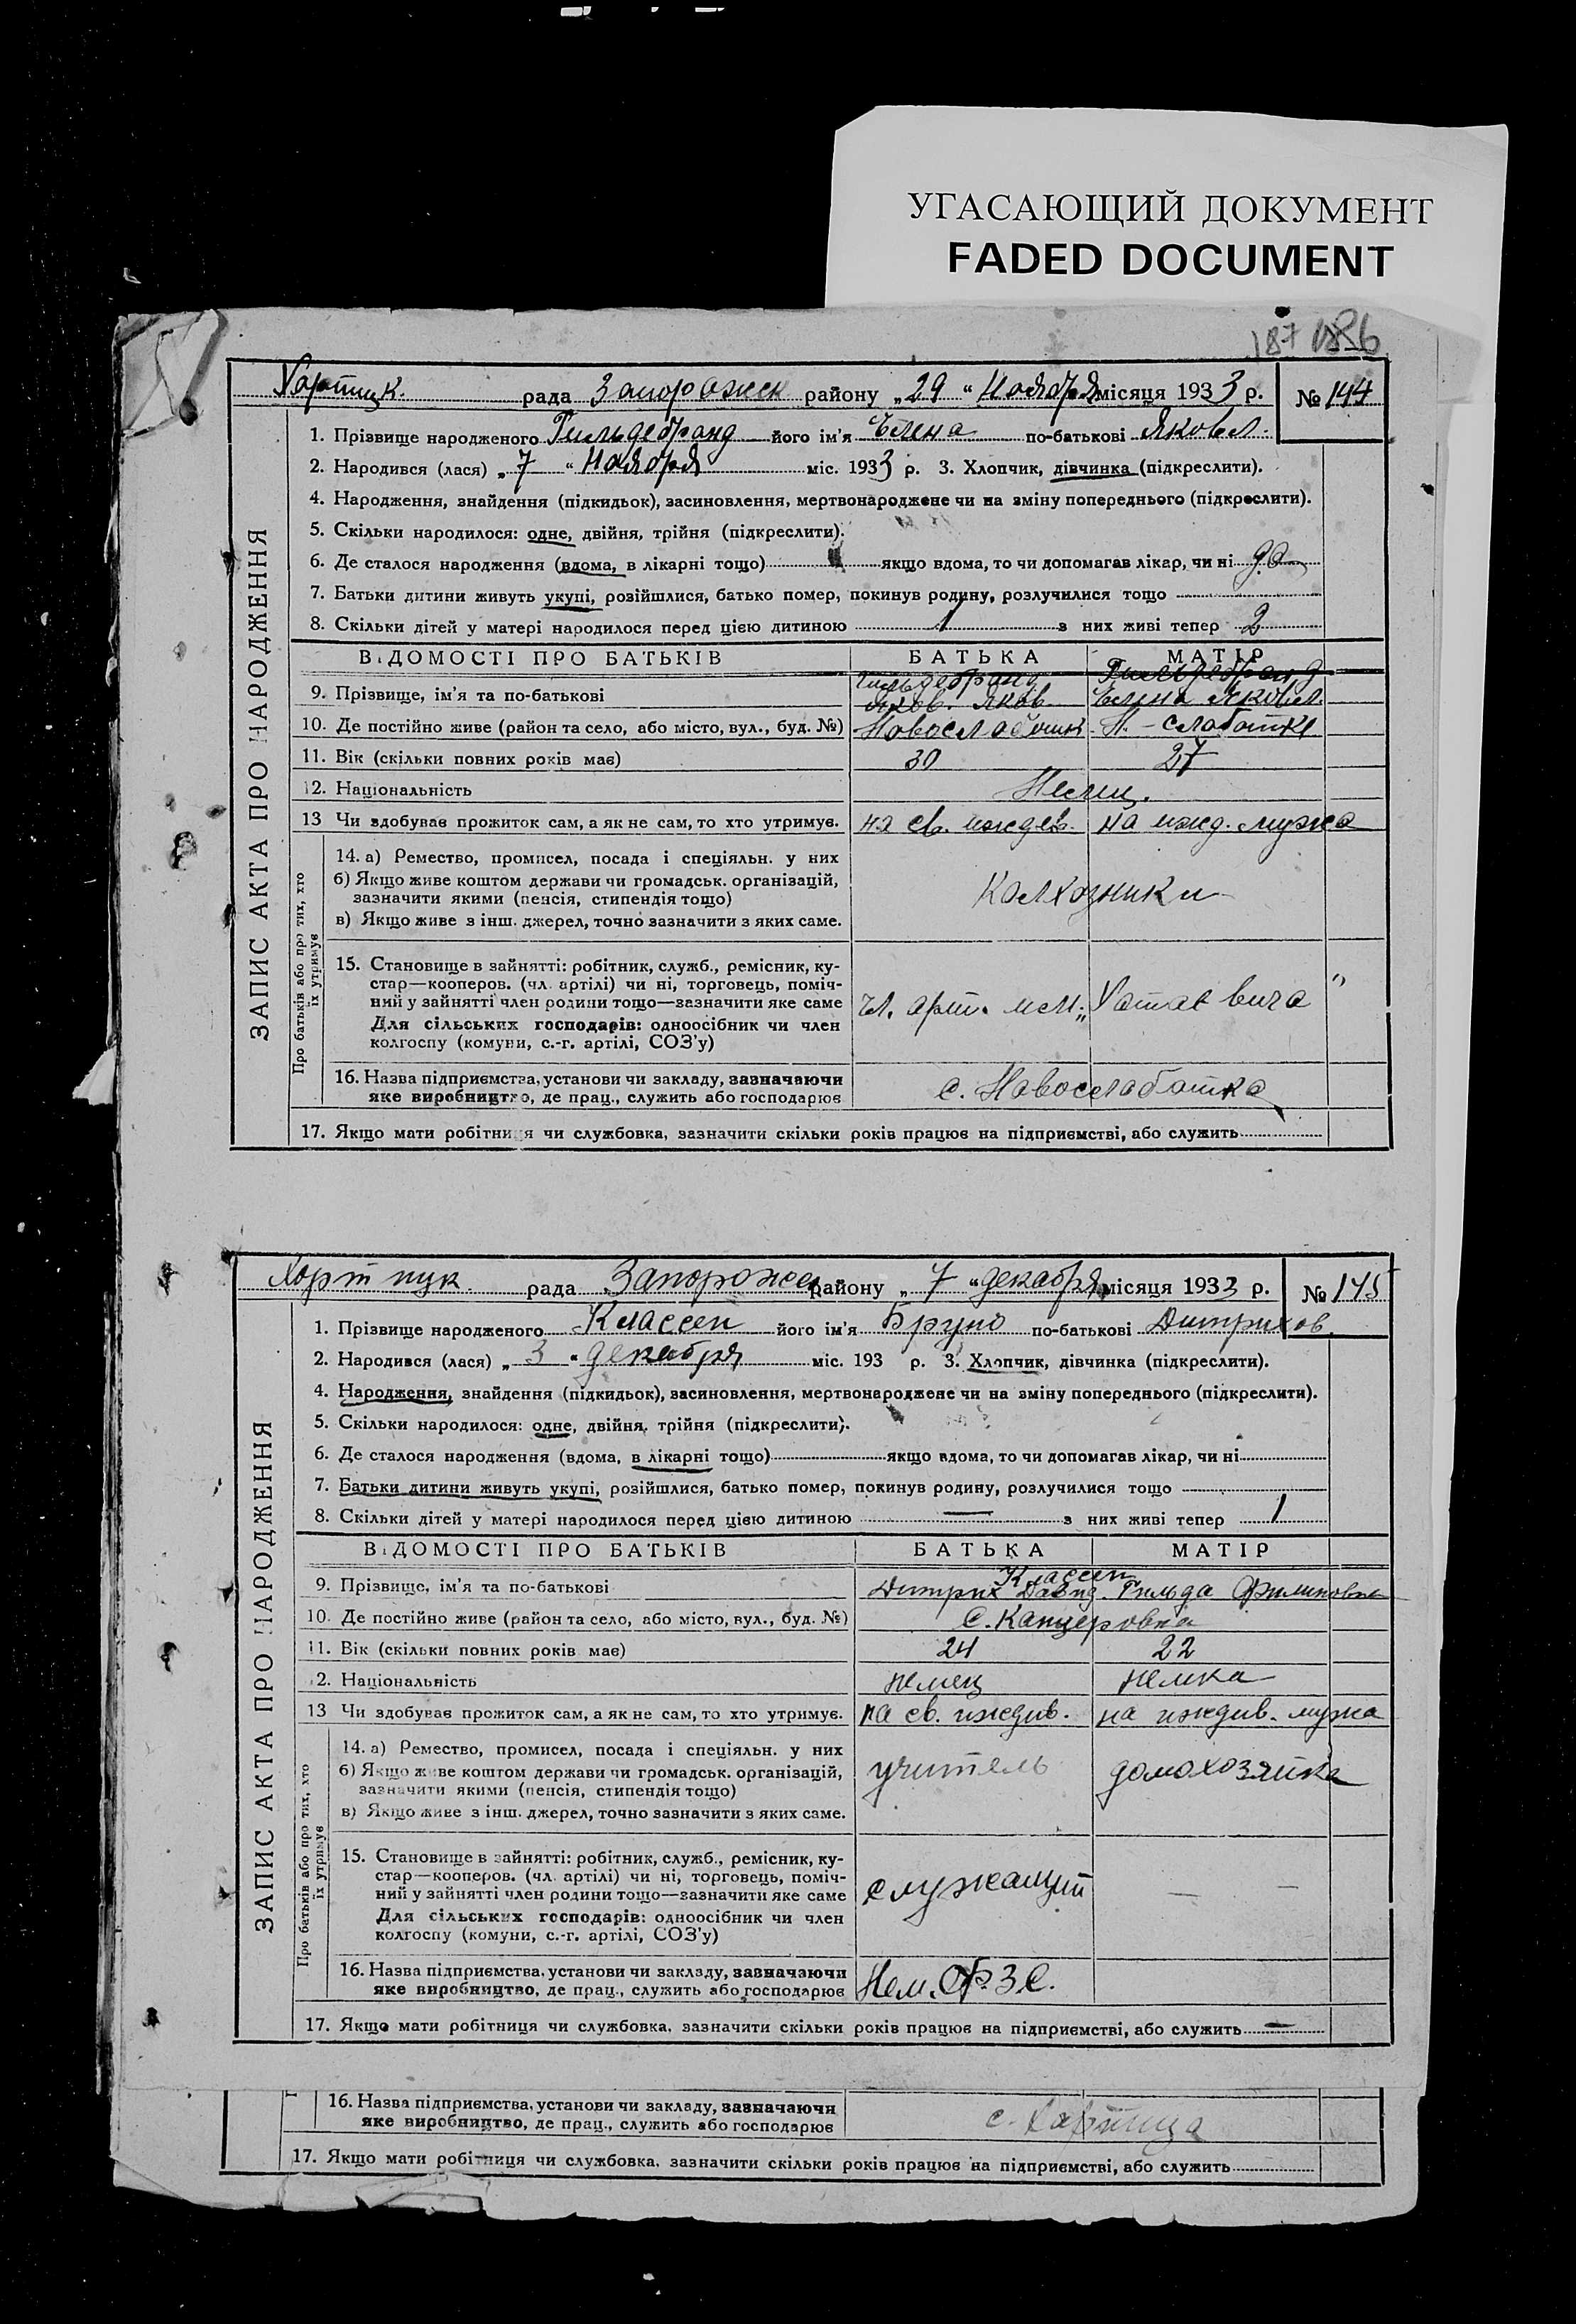 УГАСАЮЩИЙ ДОКУМЕНТ
FADED DOCUMENT
187 186
Хортицк. рада Запорожск району „29“ Ноября місяця 1933 р. № 144
ЗАПИС АКТА ПРО НАРОДЖЕННЯ
1. Прізвище народженого Гильдебранд його ім'я Елена по-батькові Яковл.
2. Народився (лася) „7“ Ноября міс. 1933 р. 3. Хлопчик, дівчинка (підкреслити).
4. Народження, знайдення (підкидьок), засиновлення, мертвонароджене чи на зміну попереднього (підкреслити).
5. Скільки народилося: одне, двійня, трійня (підкреслити).
6. Де сталося народження (вдома, в лікарні тощо) якщо вдома, то чи допомагав лікар, чи ні да
7. Батьки дитини живуть укупі, розійшлися, батько помер, покинув родину, розлучилися тощо
8. Скільки дітей у матері народилося перед цією дитиною 1 з них живі тепер 2
ВІДОМОСТІ ПРО БАТЬКІВ БАТЬКА МАТІР
Гильдебранд Гильдебранд
9. Прізвище, ім'я та по-батькові Яков. Яков. Елена Яковл.
10. Де постійно живе (район та село, або місто, вул., буд. №) Новослободк. Н.-слободка
11. Вік (скільки повних років має) 30 27
12. Національність Немц.
13 Чи здобував прожиток сам, а як не сам, то хто утримує. на св. иждев. на ижд. мужа
Про батьків або про тих, хто їх утримує
14. а) Ремество, промисел, посада і спеціяльн. у них
б) Якщо живе коштом держави чи громадськ. організацій,
зазначити якими (пенсія, стипендія тощо) Колхозники
в) Якщо живе з інш. джерел, точно зазначити з яких саме.
15. Становище в зайнятті: робітник, служб., ремісник, ку-
стар—кооперов. (чл. артілі) чи ні, торговець, поміч-
ний у зайнятті член родини тощо—зазначити яке саме чл. арт. им. „Хатаевича“
Для сільських господарів: одноосібник чи член
колгоспу (комуни, с.-г. артілі, СОЗ'у)
16. Назва підприємства, установи чи закладу, зазначаючи
яке виробництво, де прац., служить або господарює с. Новослободка
17. Якщо мати робітниця чи службовка, зазначити скільки років працює на підприємстві, або служить
Хортицк. рада Запорожск району „7“ декабря місяця 1933 р. № 145
ЗАПИС АКТА ПРО НАРОДЖЕННЯ
1. Прізвище народженого Классен його ім'я Бруно по-батькові Дитрихов.
2. Народився (лася) „3“ декабря міс. 193 р. 3. Хлопчик, дівчинка (підкреслити).
4. Народження, знайдення (підкидьок), засиновлення, мертвонароджене чи на зміну попереднього (підкреслити).
5. Скільки народилося: одне, двійня, трійня (підкреслити).
6. Де сталося народження (вдома, в лікарні тощо) якщо вдома, то чи допомагав лікар, чи ні
7. Батьки дитини живуть укупі, розійшлися, батько помер, покинув родину, розлучилися тощо
8. Скільки дітей у матері народилося перед цією дитиною — з них живі тепер 1
ВІДОМОСТІ ПРО БАТЬКІВ БАТЬКА МАТІР
Классен
9. Прізвище, ім'я та по-батькові Дитрих Давид. Гильда Филиповна
10. Де постійно живе (район та село, або місто, вул., буд. №) с. Канцеровка
11. Вік (скільки повних років має) 24 22
12. Національність немец немка
13 Чи здобував прожиток сам, а як не сам, то хто утримує. на св. иждив. на иждив. мужа
Про батьків або про тих, хто їх утримує
14. а) Ремество, промисел, посада і спеціяльн. у них
б) Якщо живе коштом держави чи громадськ. організацій, учитель домохозяйка
зазначити якими (пенсія, стипендія тощо)
в) Якщо живе з інш. джерел, точно зазначити з яких саме.
15. Становище в зайнятті: робітник, служб., ремісник, ку-
стар—кооперов. (чл. артілі) чи ні, торговець, поміч-
ний у зайнятті член родини тощо—зазначити яке саме служащий — —
Для сільських господарів: одноосібник чи член
колгоспу (комуни, с.-г. артілі, СОЗ'у)
16. Назва підприємства, установи чи закладу, зазначаючи
яке виробництво, де прац., служить або господарює Нем. Ф.З.С.
17. Якщо мати робітниця чи службовка, зазначити скільки років працює на підприємстві, або служить —
16. Назва підприємства, установи чи закладу, зазначаючи
яке виробництво, де прац., служить або господарює с. Хортица
17. Якщо мати робітниця чи службовка, зазначити скільки років працює на підприємстві, або служить